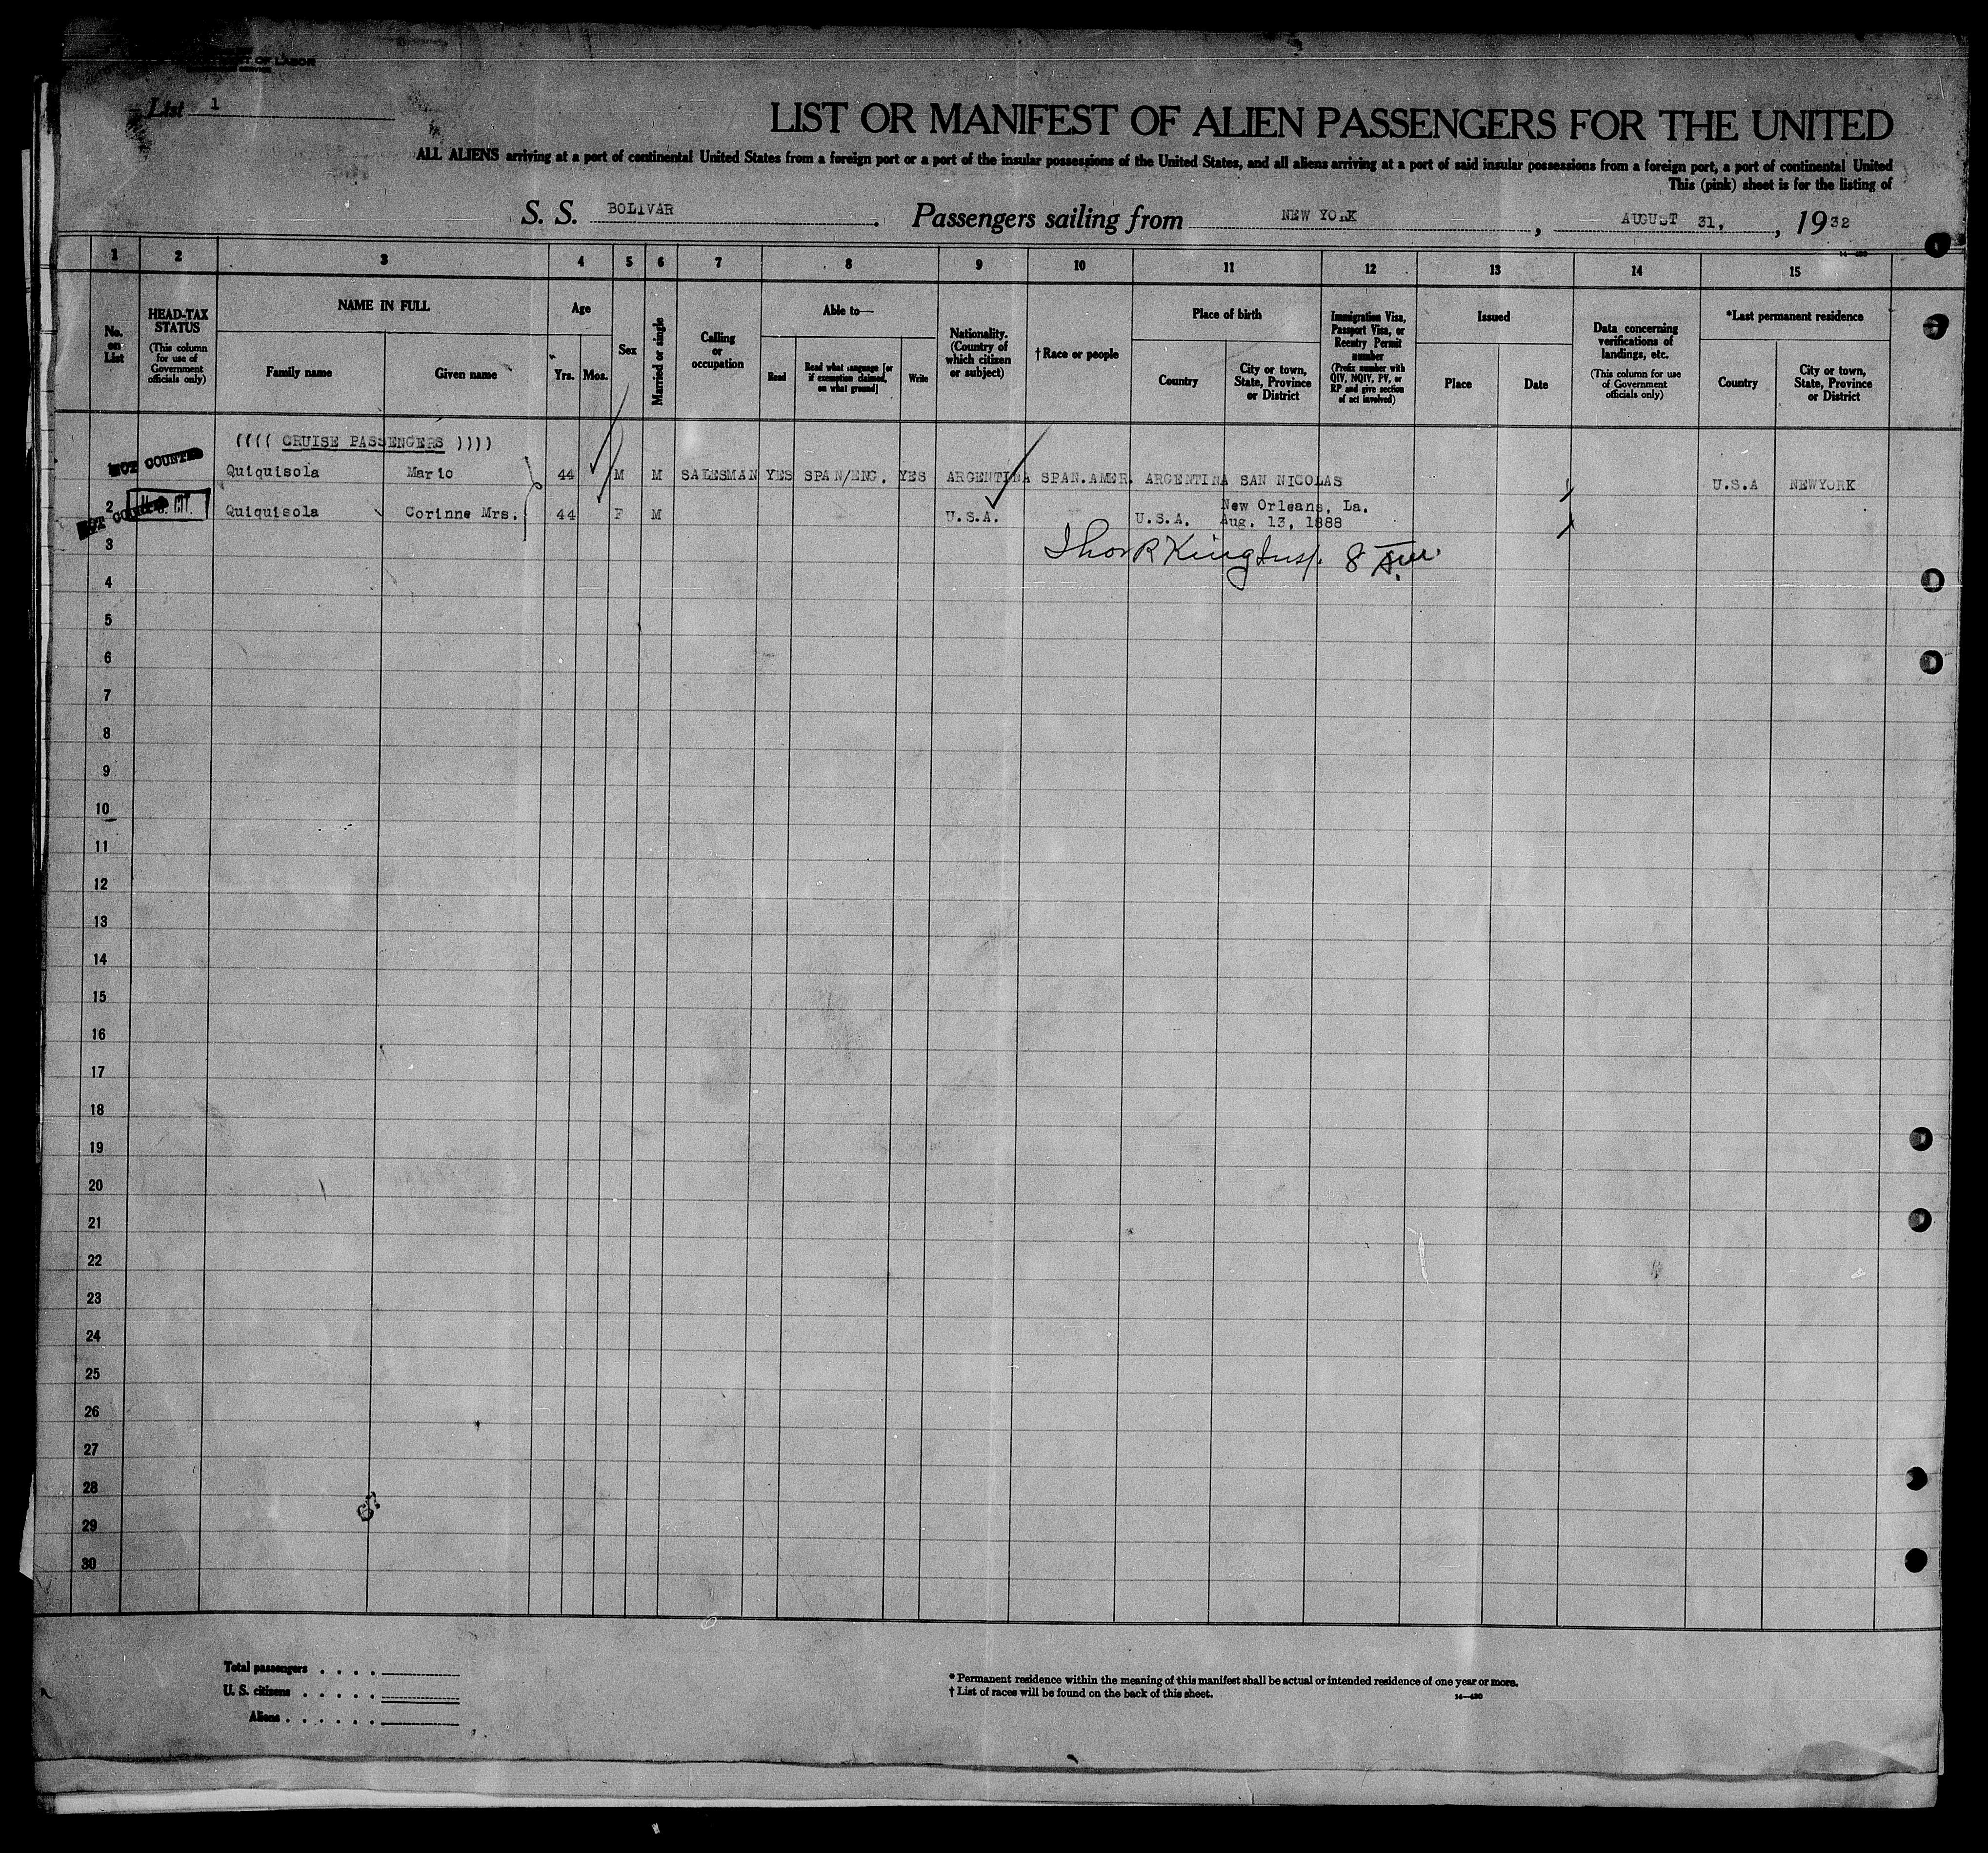 T OF LABOR
List 1
LIST OR MANIFEST OF ALIEN PASSENGERS FOR THE UNITED
ALL ALIENS arriving at a port of continental United States from a foreign port or a port of the insular possessions of the United States, and all aliens arriving at a port of said insular possessions from a foreign port, a port of continental United
This (pink) sheet is for the listing of
S. S. BOLIVAR . Passengers sailing from NEW YORK , AUGUST 31, , 1932
1 2 3 4 5 6 7 8 9 10 11 12 13 14 15
No. on List
HEAD-TAX STATUS
(This column for use of Government officials only)
NAME IN FULL
Family name
Given name
Age
Yrs. Mos.
Sex
Married or single
Calling or occupation
Able to—
Read
Read what language [or if exemption claimed, on what ground]
Write
Nationality. (Country of which citizen or subject)
† Race or people
Place of birth
Country
City or town, State, Province or District
Immigration Visa, Passport Visa, or Reentry Permit number
(Prefix number with QIV, NQIV, PV, or RP and give section of act involved)
Issued
Place
Date
Data concerning verifications of landings, etc.
(This column for use of Government officials only)
*Last permanent residence
Country
City or town, State, Province or District
(((( CRUISE PASSENGERS ))))
NOT COUNTED
Quiquisola Mario 44 M M SALESMAN YES SPAN/ENG. YES ARGENTINA SPAN.AMER. ARGENTINA SAN NICOLAS U.S.A NEWYORK
NOT COUNTED
2 Quiquisola Corinne Mrs. 44 F M U.S.A. U.S.A. New Orleans, La.
Aug. 13, 1888
3
4
5
6
7
8
9
10
11
12
13
14
15
16
17
18
19
20
21
22
23
24
25
26
27
28
29
30
Total passengers . . . .
U. S. citizens . . . . .
Aliens . . . . . .
* Permanent residence within the meaning of this manifest shall be actual or intended residence of one year or more.
† List of races will be found on the back of this sheet.
14—430